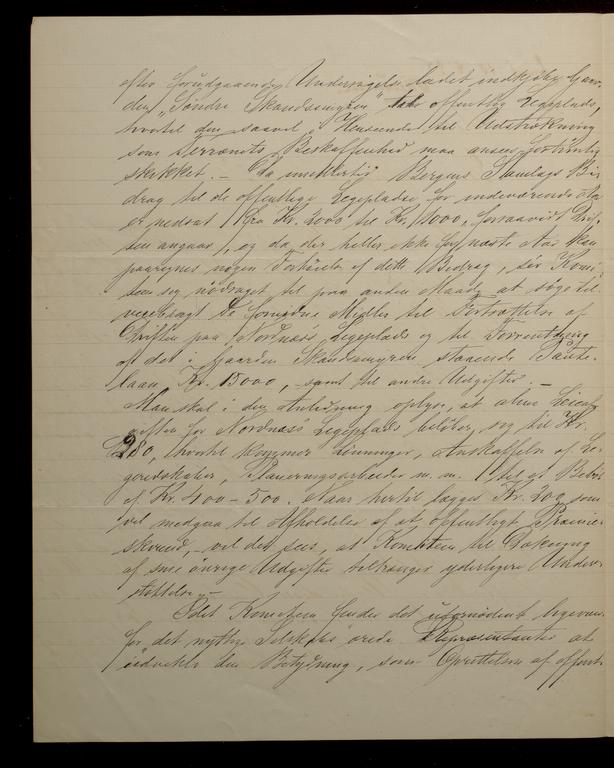 efter forudgaaende Undersøgelse ladet indkjøbe Gaar-
den "Søndre Skandsmyren" til offentlig Legeplads,
hvortil den saavel i Henseende til Udstrækning
som Terrænets Beskaffenhed maa ansees fortrinlig
skikket. – Da imidlertid Bergens Samlags Bi-
drag til de offentlige Legepladse for indeværende Aar
er nedsat fra Kr. 2000 til Kr. 1000, forsaavidt Drif-
ten angaar, og da der heller ikke for næste Aar kan
paaregnes nogen Forhøielse af dette Bidrag, ser Komi-
teen sig nødsaget til paa anden Maade at søge til-
veiebragt de fornødne Midler til Fortsættelse af
Driften paa Nordnæs Legeplads og til Forrentning
af det i Gaarden Skandsmyren staaende Pante-
laan, Kr. 15000, samt til andre Udgifter. –
Man skal i den Anledning oplyse, at alene Leieaf-
giften for Nordnæs Legeplads beløber sig til Kr.
280, hvortil kommer Lønninger, Anskaffelse af Le-
geredskaber, Planeringsarbeider m. m. til et Beløb
af Kr. 400 – 500. Naar hertil lægges Kr. 400 som
vil medgaa til Afholdelse af et offentligt Præmie-
skirend, – vil det sees, at Komiteen til Dækning
af sine øvrige Udgifter tiltrænger yderligere Under-
støttelse. –
Idet Komiteen finder det ufornødent ligeover-
for det nyttige Selskabs ærede Repræsentanter at
udvikle den Betydning, som Oprettelsen af offent-